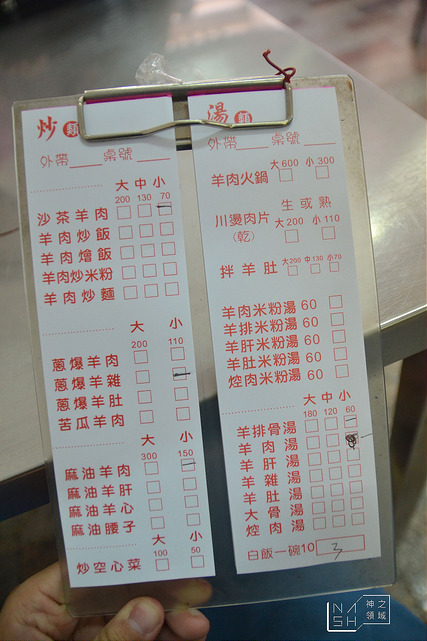 炒類
外帶____ 桌號____
大 中 小
200 130 70
沙茶羊肉
羊肉炒飯
羊肉燴飯
羊肉炒米粉
羊肉炒麵
大 小
200 110
蔥爆羊肉
蔥爆羊雜
蔥爆羊肚
苦瓜羊肉
大 小
300 150
麻油羊肉
麻油羊肝
麻油羊心
麻油腰子
大 小
100 50
炒空心菜
湯類
外帶____ 桌號____
羊肉火鍋 大600 小300
生或熟
川燙肉片 大200 小110
(乾)
拌羊肚 大200 中130 小70
羊肉米粉湯 60
羊排米粉湯 60
羊肝米粉湯 60
羊肚米粉湯 60
焢肉米粉湯 60
大 中 小
180 120 60
羊排骨湯
羊肉湯
羊肝湯
羊雜湯
羊肚湯
大骨湯
焢肉湯
白飯一碗10 3
NMSH 神之領域